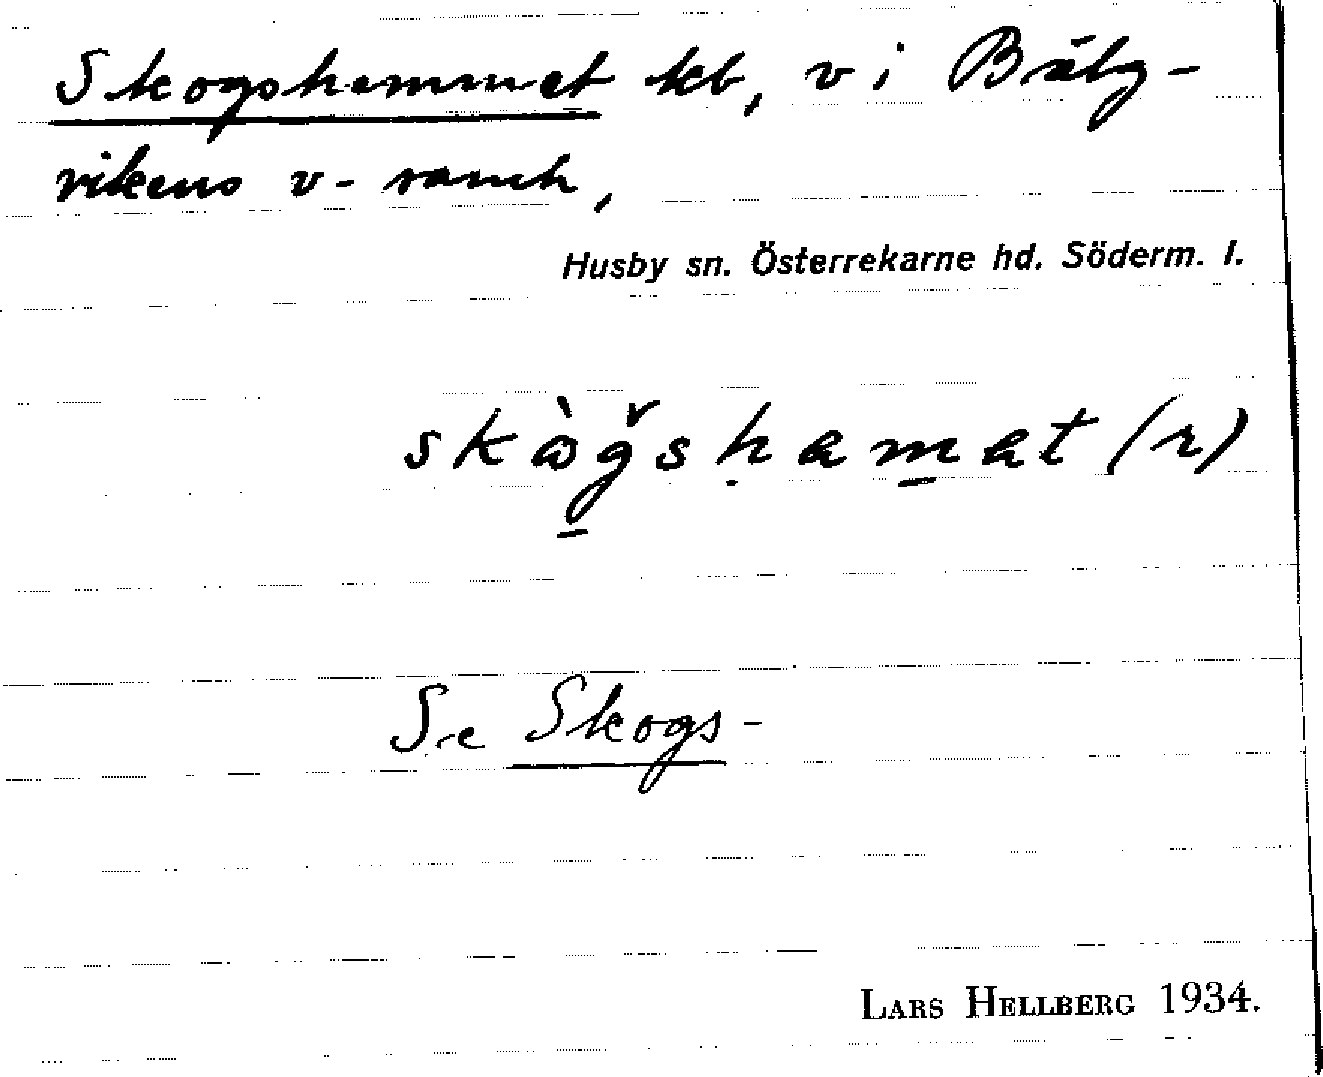 Skogshemmet kb, v i Bälg-
vikens v-samh,
Husby sn. Österrekarne hd. Söderm. l.
skògshemet (r)
Se Skogs-
LARS HELLBERG 1934.